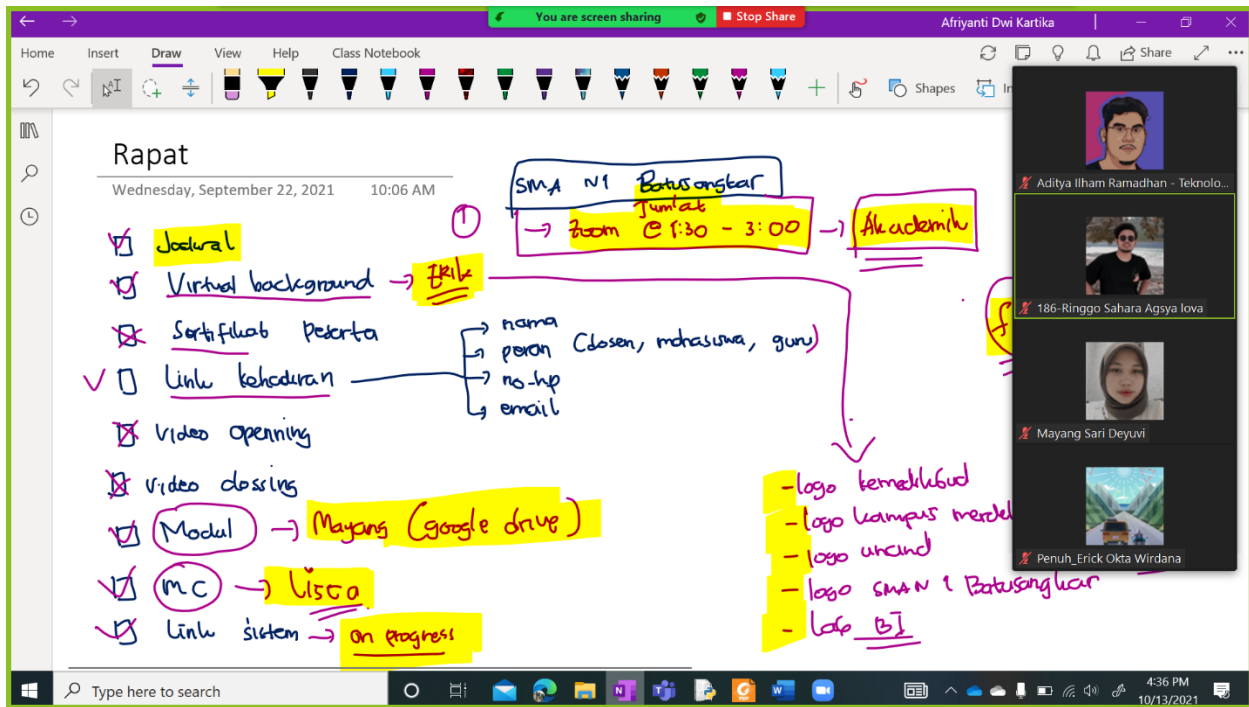 You are screen sharing
Stop Share
Afriyanti Dwi Kartika
Home Insert Draw View Help Class Notebook
Share
Shapes
Rapat
Wednesday, September 22, 2021 10:06 AM
SMA N1 Batusangkar
Jum'at
① → Zoom @ 1:30 - 3:00 → Akademik
Jadwal
Virtual background → ERIK
Sertifikat peserta
Link kehadiran
→ nama
→ peran (dosen, mahasiswa, guru)
→ no-hp
→ email
video openning
video clossing
Modul → Mayang (google drive)
MC → Lisca
Link sistem → on progress
- logo kemdikbud
- logo kampus merdek
- logo unand
- logo SMAN 1 Batusangkar
- logo BI
Aditya Ilham Ramadhan - Teknolo...
186-Ringgo Sahara Agsya lova
Mayang Sari Deyuvi
Penuh_Erick Okta Wirdana
Type here to search
4:36 PM
10/13/2021